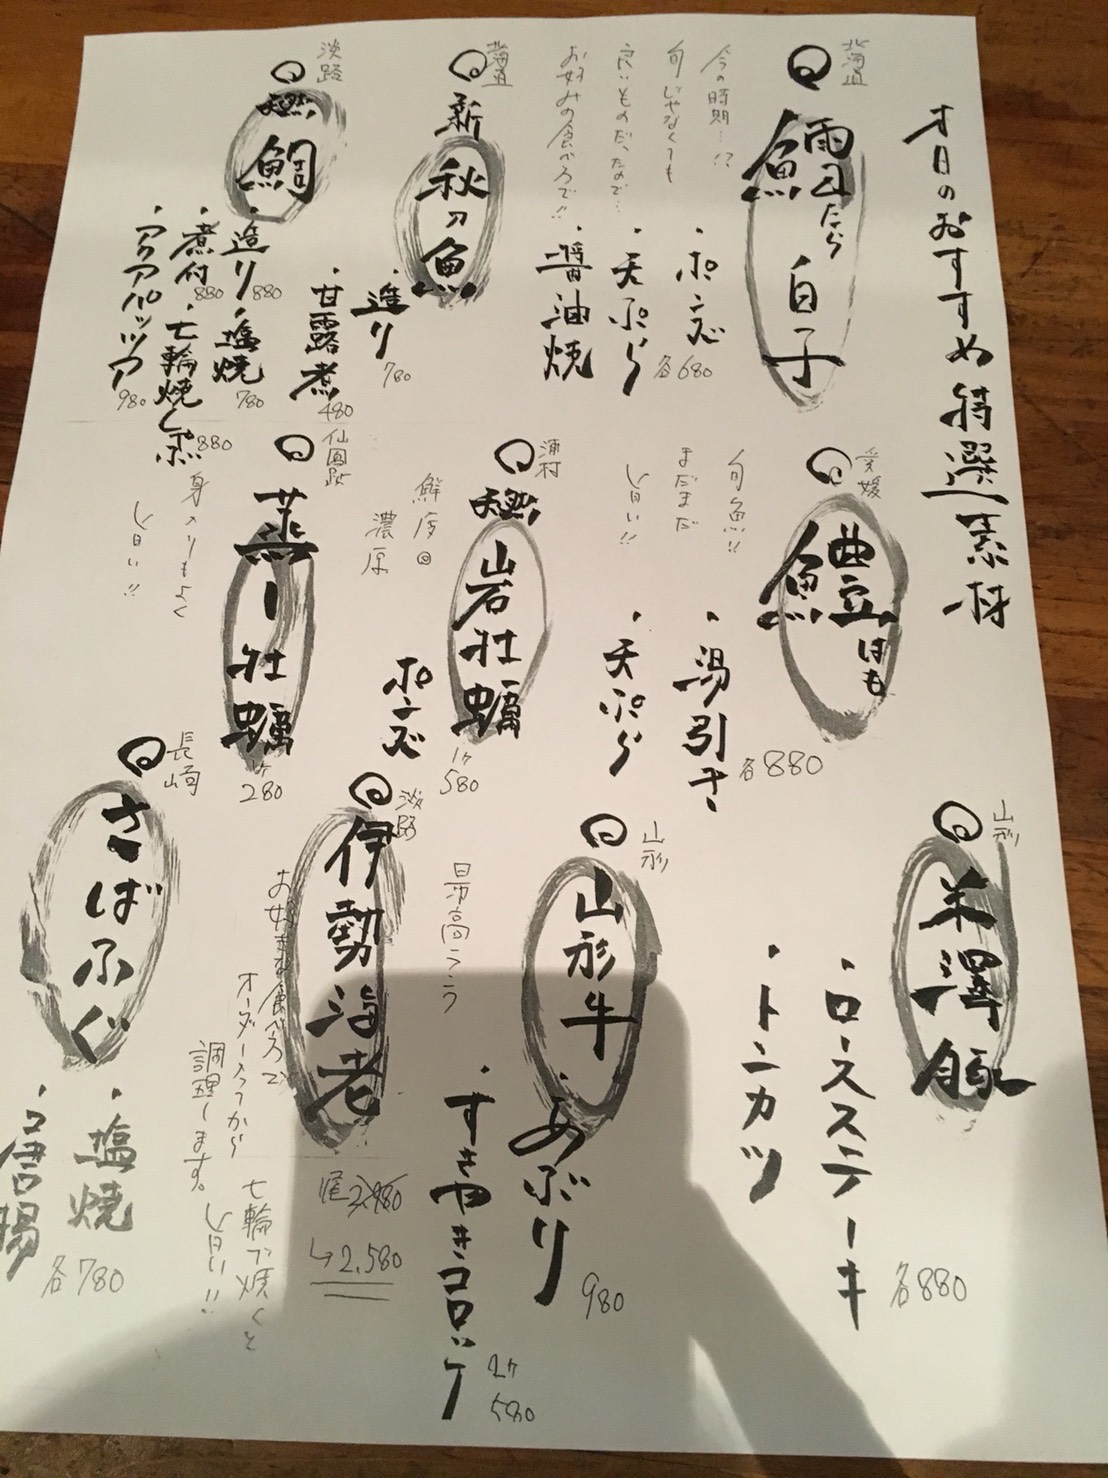 本日のおすすめ特選素材
北海道
鱈たら白子
今の時期…!?
旬じゃなくても
良いものだったので…
お好みの食べ方で!!
・ポン酢
・天ぷら
・醤油焼
各680
北海道
新秋刀魚
・造り
780
・甘露煮
480
淡路
天然鯛
・造り
880
・塩焼
780
・煮付
880
・七輪焼しゃぶ
880
・アクアパッツァ
980
愛媛
鱧はも
旬魚!!
まだまだ
旨い!!
・湯引き
・天ぷら
各880
浦村
天然岩牡蠣
鮮度◎
濃厚
ポン酢
1ケ
580
仙鳳趾
蒸し牡蠣
身入りもよく
旨い!!
1ケ
280
山形
米澤豚
・ロースステーキ
・トンカツ
各880
山形
山形牛
最高ランク
・あぶり
980
・すきやきコロッケ
2ケ
580
淡路
伊勢海老
お好きな食べ方で
オーダー入ってから
調理します。
七輪で焼くと
旨い!!
1尾2,980
↳2,580
長崎
さばふぐ
・塩焼
・唐揚
各780